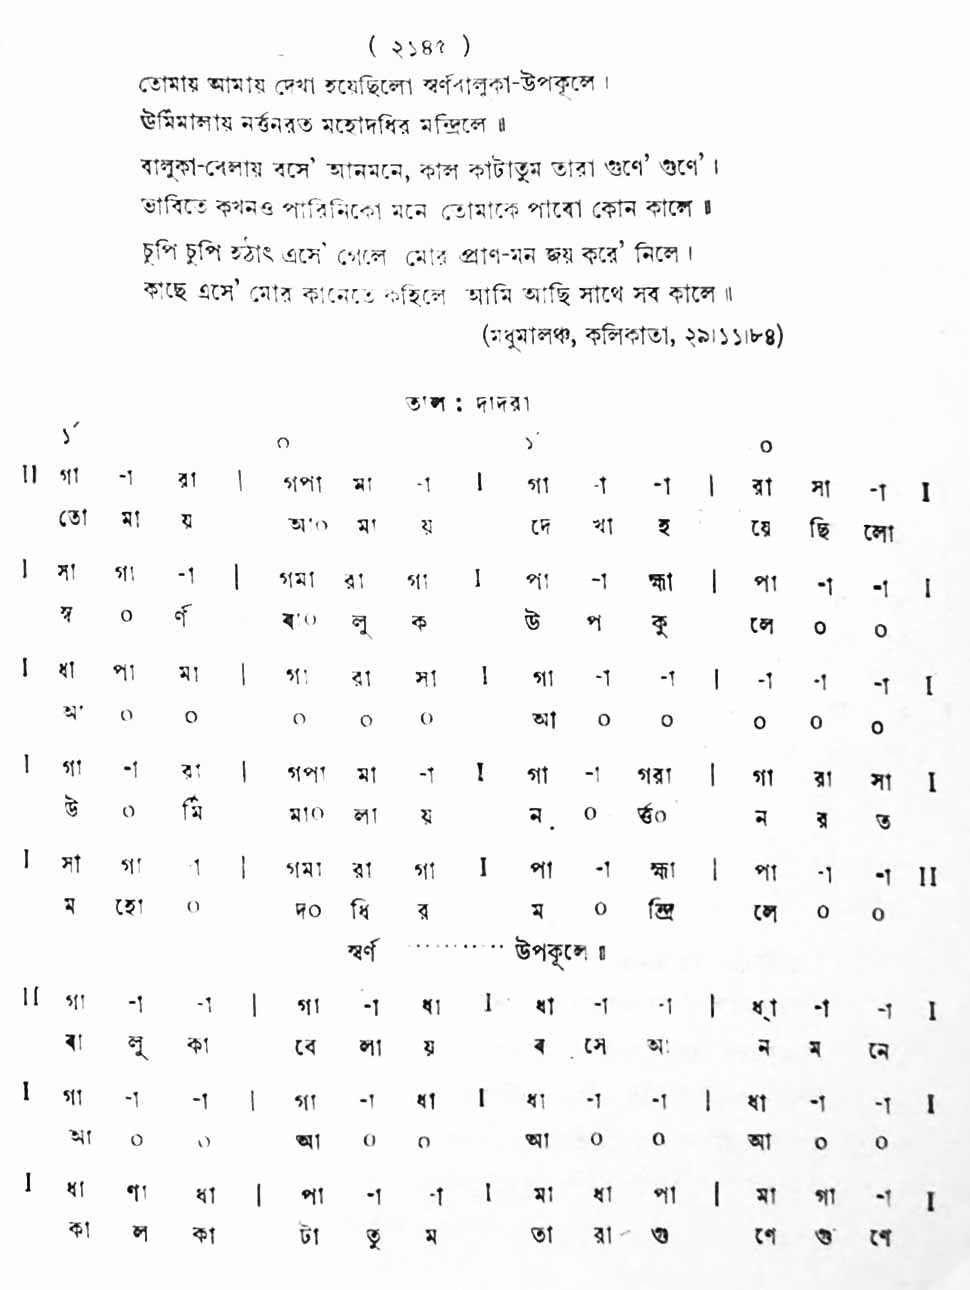 ( ২১৪৫ )
তোমায় আমায় দেখা হয়েছিলো স্বর্ণবালুকা-উপকূলে।
ঊর্মিমালায় নর্ত্তনরত মহোদধির মন্দ্রিলে॥
বালুকা-বেলায় বসে' আনমনে, কাল কাটাতুম তারা গুণে' গুণে'।
ভাবিতে কখনও পারিনিকো মনে তোমাকে পাবো কোন কালে॥
চুপি চুপি হঠাৎ এসে' গেলে মোর প্রাণ-মন জয় করে' নিলে।
কাছে এসে' মোর কানেতে কহিলে আমি আছি সাথে সব কালে॥
(মধুমালঞ্চ, কলিকাতা, ২৯।১১।৮৪)
তাল : দাদরা
১´ ০ ১´ ০
II গা -া রা | গপা মা -া I গা -া -া | রা সা -া I
তো মা য় আ০ মা য় দে খা হ য়ে ছি লো
I সা গা -া | গমা রা গা I পা -া হ্মা | পা -া -া I
স্ব ০ র্ণ বা০ লু ক উ প কু লে ০ ০
I ধা পা মা | গা রা সা I গা -া -া | -া -া -া I
আ ০ ০ ০ ০ ০ আ ০ ০ ০ ০ ০
I গা -া রা | গপা মা -া I গা -া গরা | গা রা সা I
উ ০ র্মি মা০ লা য় ন ০ র্ত্ত০ ন র ত
I সা গা -া | গমা রা গা I পা -া হ্মা | পা -া -া II
ম হো ০ দ০ ধি র ম ০ ন্দ্রি লে ০ ০
স্বর্ণ ·········· উপকূলে॥
II গা -া -া | গা -া ধা I ধা -া -া | ধ্া -া -া I
বা লু কা বে লা য় ব সে আ ন ম নে
I গা -া -া | গা -া ধা I ধা -া -া | ধা -া -া I
আ ০ ০ আ ০ ০ আ ০ ০ আ ০ ০
I ধা ণা ধা | পা -া -া I মা ধা পা | মা গা -া I
কা ল কা টা তু ম তা রা গু ণে গু ণে